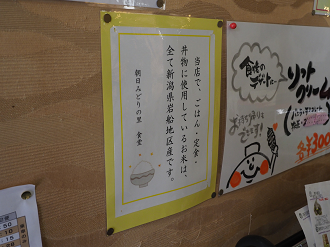 当店で、ごはん・定食・
丼物に使用しているお米は、
全て新潟県岩船地区産です。
朝日みどりの里 食堂
食後の
デザートに…
ソフト
クリーム
各¥300